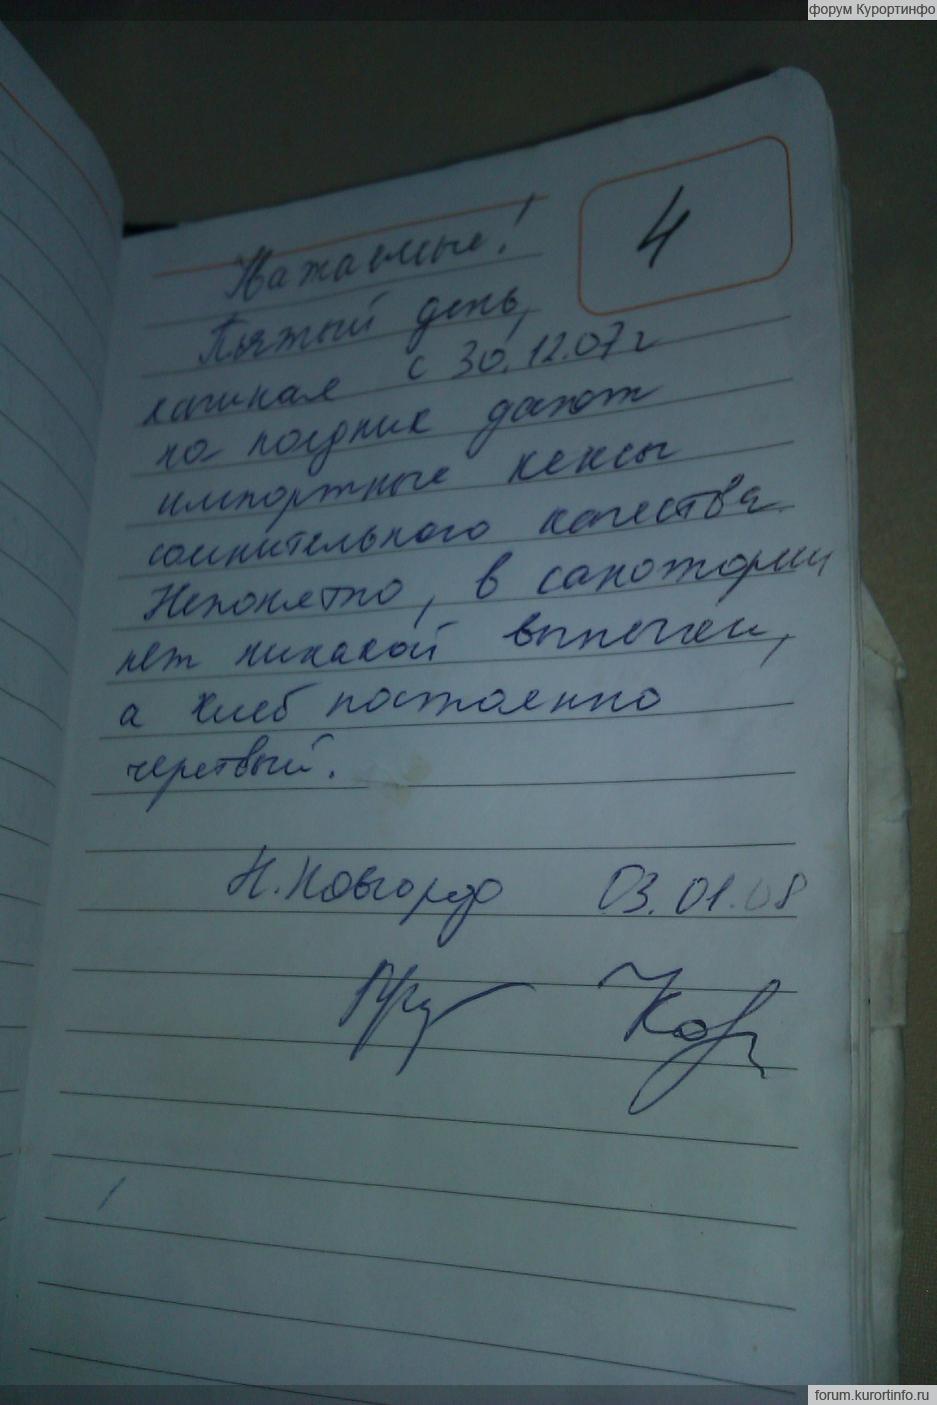 форум Курортинфо
4
Уважаемые!
Пятый день,
начиная с 30.12.07 г
на полдник дают
импортные кексы
сомнительного качества.
Непонятно, в санатории
нет никакой выпечки,
а хлеб постоянно
черствый.
Н.Новгород 03.01.08
forum.kurortinfo.ru